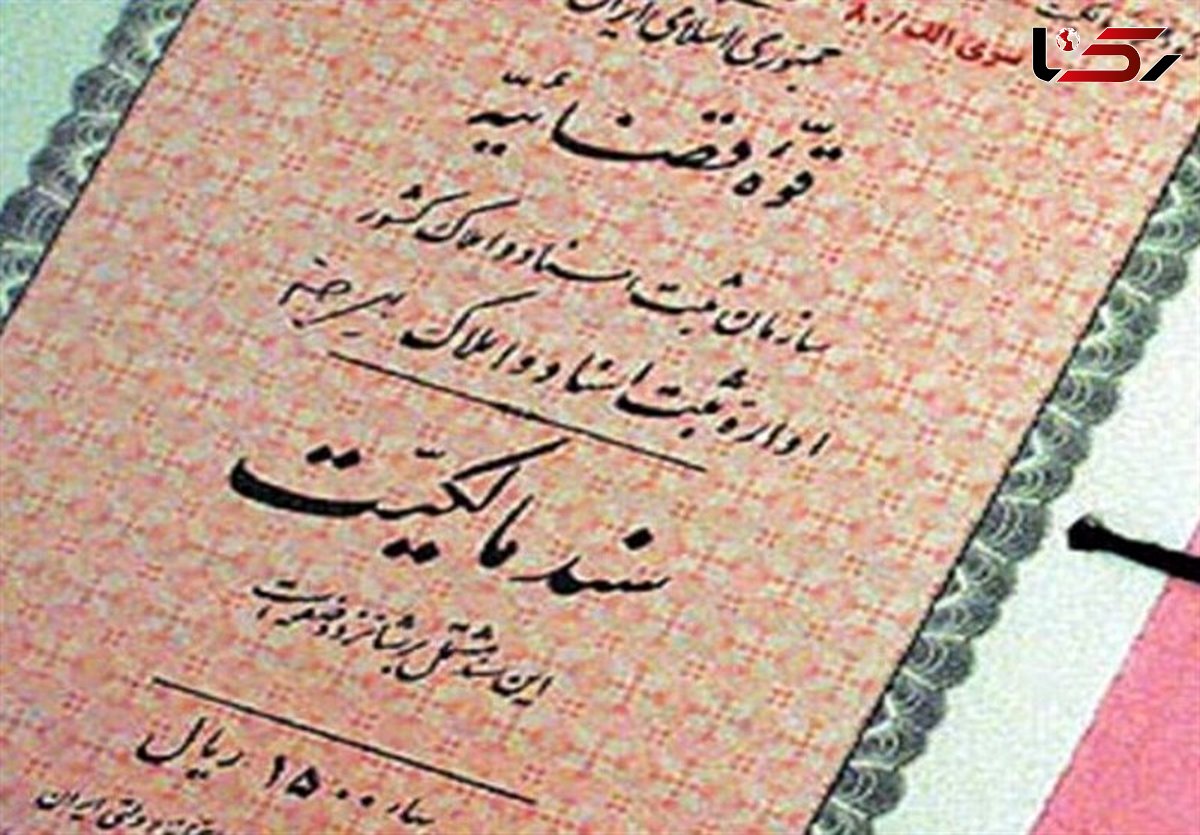 سری الف/۸۰
رکنا
جمهوری اسلامی ایران
قوّه قضائیّه
سازمان ثبت اسناد و املاک کشور
اداره ثبت اسناد و املاک بیرجند
سند مالکیّت
این سند مشتمل بر شانزده صفحه است
بهاء ۱۵۰۰ ریال
دولتی ایران